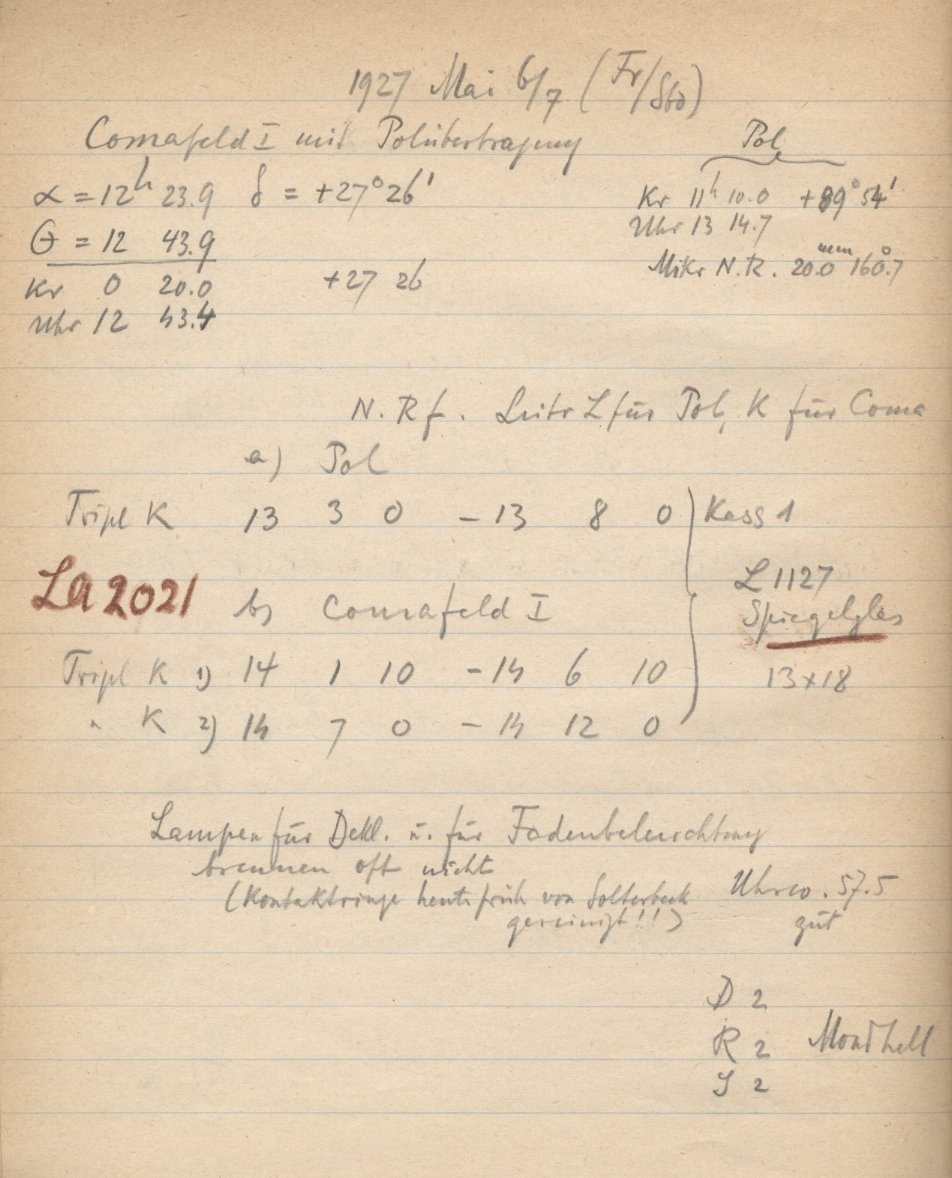 1927 Mai 6/7 (Fr/Sbd)
Comafeld I mit Polübertragung
Pol
α = 12h 23.9 δ = +27° 26'
Kr 11h 10.0 +89° 54'
Θ = 12 43.9
Uhr 13 14.7
Kr 0 20.0 +27 26
Mikr N.R. 20.0mm 160°.7
Uhr 12 43.4
N. Rf. Leitr L für Pol, K für Coma
a) Pol
Tripl K 13 3 0 – 13 8 0 Kass 1
L 1127
La 2021
b) Comafeld I
Spiegelglas
Tripl K 1) 14 1 10 – 14 6 10
13x18
" K 2) 14 7 0 – 14 12 0
Lampen für Dekl. u. für Fadenbeleuchtung
brennen oft nicht
(Kontaktringe heute früh von Solterbeck
gereinigt!!)
Uhrw. 57.5
gut
D 2
R 2 Mondhell
S 2